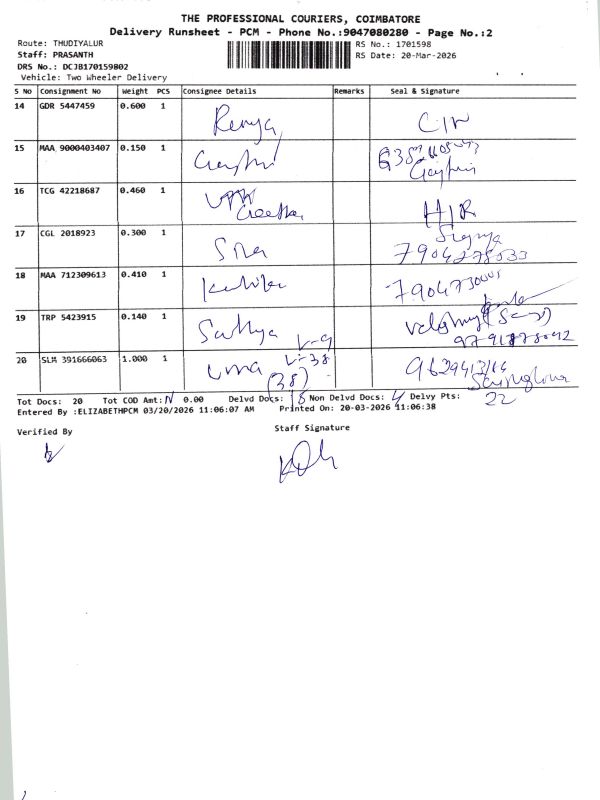 THE PROFESSIONAL COURIERS, COIMBATORE
Delivery Runsheet - PCM - Phone No.:9047080280 - Page No.:2
Route: THUDIYALUR
Staff: PRASANTH
DRS No.: DCJB170159802
Vehicle: Two Wheeler Delivery
RS No.: 1701598
RS Date: 20-Mar-2026
S No Consignment No Weight PCS Consignee Details Remarks Seal & Signature
14 GDR 5447459 0.600 1 Renya
15 MAA 9000403407 0.150 1 Gayatri
16 TCG 42218687 0.460 1 Geetha H/R
17 CGL 2018923 0.300 1
7904278033
18 MAA 712309613 0.410 1
19 TRP 5423915 0.140 1 Sathya
20 SLM 391666063 1.000 1 uma (38)
Tot Docs: 20 Tot COD Amt: 0.00 Delvd Docs: 18 Non Delvd Docs: 4 Delvy Pts: 22
Entered By :ELIZABETHPCM 03/20/2026 11:06:07 AM Printed On: 20-03-2026 11:06:38
Verified By
Staff Signature